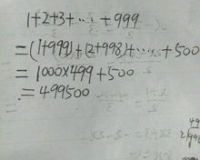 1+2+3+……+999
=(1+999)+(2+998)+……+500
=1000×499+500
=499500